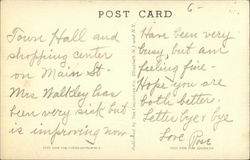 6-
POST CARD
Town Hall and
shopping center
on Main St-
Mrs Walkley has
been very sick but
is improving now
Have been very
busy, but am
feeling fine-
Hope you are
both better.
Letter bye & bye
Love Rose